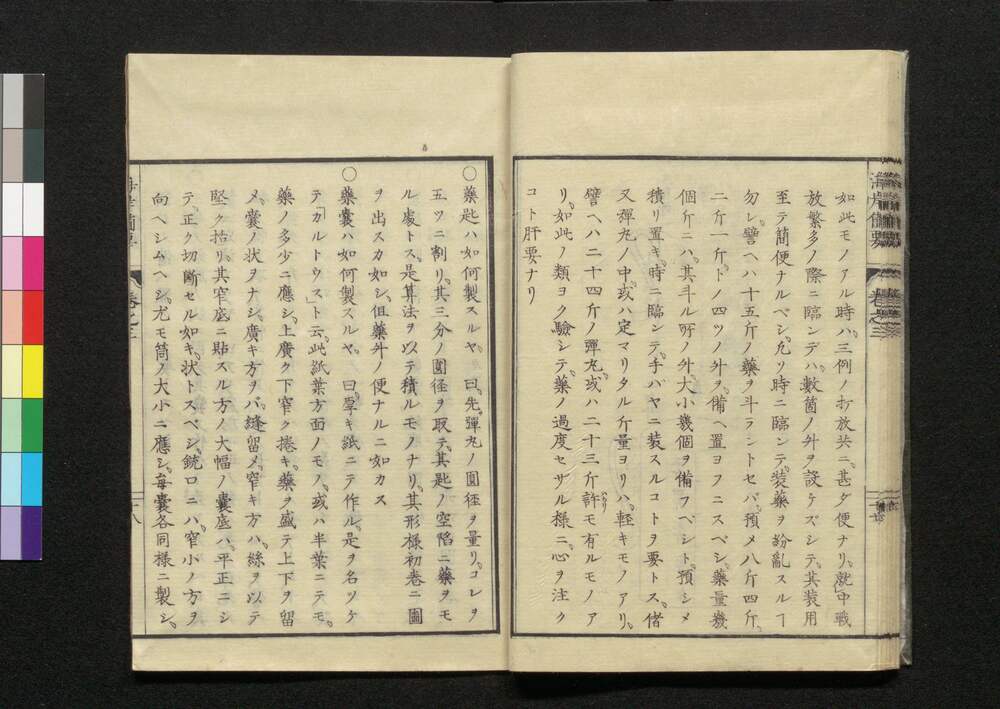 如此モノアル時ハ、三例ノ打放共ニ、甚ダ便ナリ。就中戰
放繁多ノ際ニ臨ンデハ、數箇ノ升ヲ設ケズシテ、其装用
至テ簡便ナルベシ。凡ソ時ニ臨ンテ、装藥ヲ紛亂スルヿ
勿レ。譬ヘハ十五斤ノ藥ヲ斗ラントセバ、預メ八斤四斤、
二斤一斤、トノ四ツノ升ヲ、備ヘ置ヨフニスベシ。藥量幾
個斤ニハ、其斗ル所ノ升、大小幾個ヲ備フベシト、預シメ
積リ置キ、時ニ臨ンテ、手バヤニ装スルコトヲ要トス。偖
又彈丸ノ中或ハ定マリタル斤量ヨリハ、輕キモノアリ。
譬ヘハ二十四斤ノ彈丸、或ハ二十三斤許モ有ルモノア
リ。如此ノ類ヨク驗シテ、藥ノ過度セザル様ニ、心ヲ注ク
コト肝要ナリ
○藥匙ハ如何製スルヤ。曰、先彈丸ノ圓徑ヲ量リ、コレヲ
五ツニ割リ、其三分ノ圓径ヲ取テ、其匙ノ空陷ニ藥ヲモ
ル處トス。是算法ヲ以テ積ルモノナリ。其形様初卷ニ圖
ヲ出スカ如シ。但藥升ノ便ナルニ如カス
○藥囊ハ如何製スルヤ。曰、厚キ紙ニテ作ル。是ヲ名ツケ
テ、「カルトウス」ト云。此紙葉方面ノモノ、或ハ半葉ニテモ、
藥ノ多少ニ應シ、上廣ク下窄ク捲キ、藥ヲ盛テ上下ヲ留
メ、囊ノ状ヲナシ、廣キ方ヲバ、縫留メ、窄キ方ハ、絲ヲ以テ
堅ク括リ、其窄底ニ貼スル方ノ大幅ノ囊底ハ、平正ニシ
テ、正ク切斷セル如キ、状トスベシ。銃口ニハ、窄小ノ方ヲ
向ヘシムヘシ。尤モ筒ノ大小ニ應シ、毎囊各同様ニ製シ。
卷之三